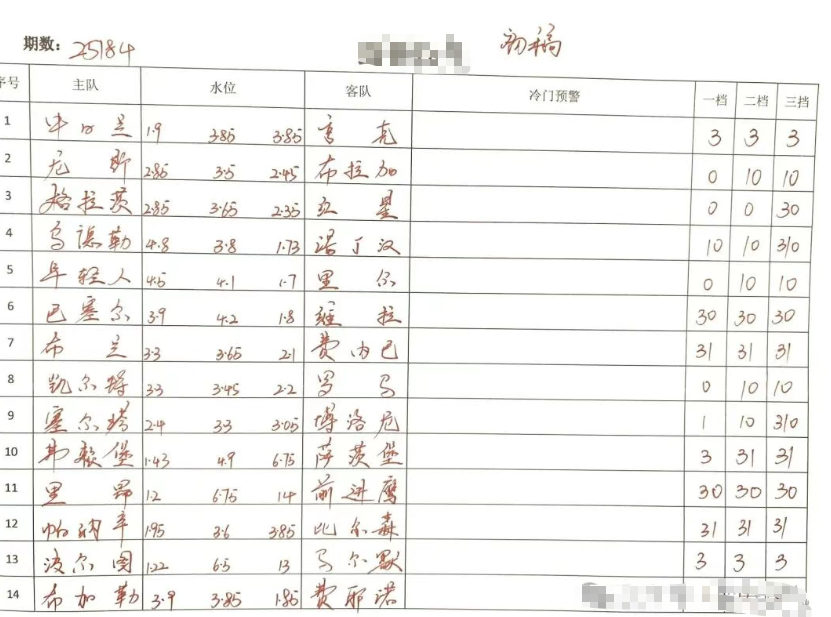 期数: 25184 初稿
序号 主队 水位 客队 冷门预警 一档 二档 三挡
1 中日兰 1.9 3.85 3.85 亨克 3 3 3
2 尼斯 2.85 3.5 2.45 布拉加 0 10 10
3 格拉茨 2.85 3.65 2.35 红星 0 0 30
4 乌德勒 4.8 3.8 1.73 诺丁汉 10 10 310
5 年轻人 4.5 4.1 1.7 里尔 0 10 10
6 巴塞尔 3.9 4.2 1.8 维拉 30 30 30
7 布兰 3.3 3.65 2.1 费内巴 31 31 31
8 凯尔特 3.3 3.45 2.2 罗马 0 10 10
9 塞尔塔 2.4 3.3 3.05 博洛尼 1 10 310
10 弗赖堡 1.43 4.9 6.75 萨茨堡 3 31 31
11 里昂 1.2 6.75 14 前进鹰 30 30 30
12 帕纳辛 1.95 3.6 3.85 比尔森 31 31 31
13 波尔图 1.22 6.5 13 马尔默 3 3 3
14 布加勒 3.9 3.85 1.85 费耶诺